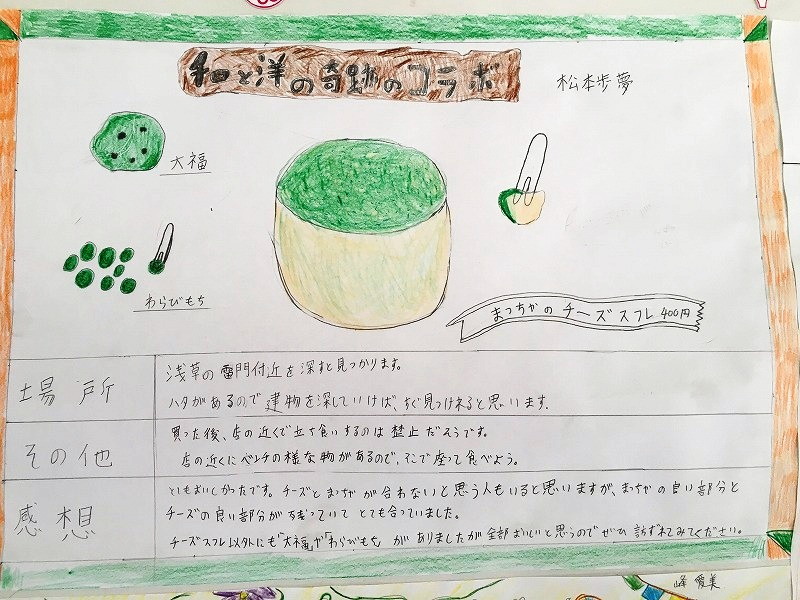 和と洋の奇跡のコラボ
松本歩夢
大福
わらびもち
まっちゃのチーズスフレ 400円
場所
浅草の雷門付近を深すと見つかります。
ハタがあるので建物を深していけば、すぐ見つけれると思います.
その他
買った後、店の近くで立ち食いするのは禁止だそうです。
店の近くにベンチの様な物があるので、そこで座って食べよう。
感想
とてもおいしかったです。チーズとまっちゃが合わないと思う人もいると思いますが、まっちゃの良い部分と
チーズの良い部分が残っていてとても合っていました。
チーズスフレ以外にも「大福」や「わらびもち」がありましたが全部おいしいと思うのでぜひ訪ずれてみてください。
峰愛美